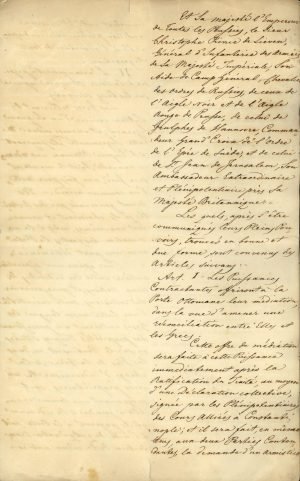 Et Sa majesté l'Empereur
de Toutes les Russies, le Sieur
Christophe Prince de Lieven,
Général d'Infanterie des Armées
de Sa Majesté Impériale, Son
Aide de Camp Général, Chevalier
des ordres de Russie, de ceux de
l'Aigle Noir et de l'Aigle
Rouge de Prusse, de celui de
Guelphes de Hannovre, Comman
deur Grand' Croix de l'Ordre
de l'Epée de Suède, et de celui
de St Jean de Jerusalem, Son
Ambassadeur Extraordinaire
et Plénipotentiaire près Sa
Majesté Britannique.
Les quels, après s'être
communiqués leurs Pleins Pou
voirs, trouvés en bonne et
due forme, sont convenus des
Articles suivans:
Art. I. Les Puissances
Contractantes offriront à la
Porte Ottomane leur médiation
dans la vue d'amener une
réconciliation entre Elle et
les Grecs.
Cette offre de médiation
sera faite à cette Puissance
immédiatement après la
Ratification du Traité, au moyen
d'une Déclaration collective,
signée par les Plénipotentiaires
des Cours Alliées à Constanti
nople; et il sera fait en même
tems, aux deux Parties Conten
dantes, la demande d'un armistice